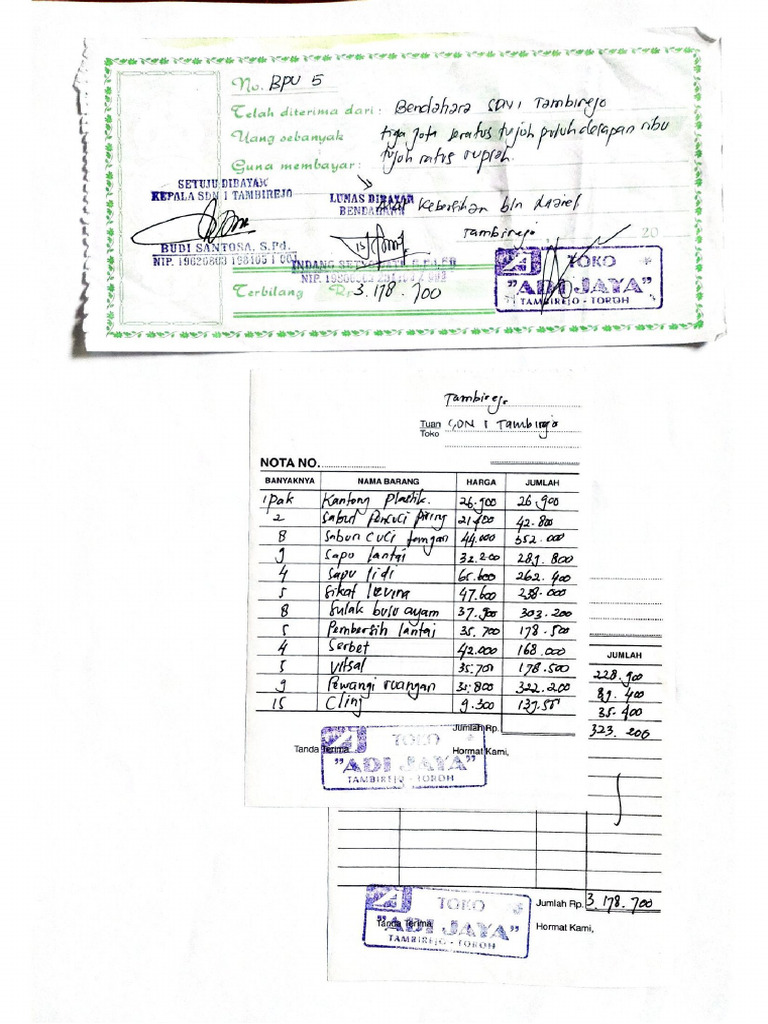 No. BPU 5
Telah diterima dari : Bendahara SDN 1 Tambirejo
Uang sebanyak tiga juta seratus tujuh puluh delapan ribu
tujuh ratus rupiah.
Guna membayar :
SETUJU DIBAYAR
KEPALA SDN 1 TAMBIREJO
LUNAS DIBAYAR
BENDAHARA
Alat Kebersihan bln Maret
Tambirejo 20
BUDI SANTOSA, S.Pd.
NIP. 19620803 198405 1 001
NIP.
TOKO
"ADI JAYA"
TAMBIREJO - TOROH
Terbilang Rp 3.178.700
Tambirejo
Tuan SDN 1 Tambirejo
Toko
NOTA NO.
BANYAKNYA NAMA BARANG HARGA JUMLAH
1 pak Kantong plastik. 26.900 26.900
2 Sabun Pencuci piring 21.400 42.800
8 Sabun cuci tangan 44.000 352.000
9 Sapu lantai 32.200 289.800
4 Sapu lidi 65.600 262.400
5 Sikat 47.600 238.000
8 Sulak bulu ayam 37.900 303.200
5 Pembersih lantai 35.700 178.500
4 Serbet 42.000 168.000
5 Vixal 35.700 178.500
9 Pewangi ruangan 35.800 322.200
15 Cling 9.300
Jumlah Rp.
Tanda Terima Hormat Kami,
TOKO
"ADI JAYA"
TAMBIREJO - TOROH
JUMLAH
228.900
89.400
35.400
323.200
Jumlah Rp. 3.178.700
Tanda Terima Hormat Kami,
TOKO
"ADI JAYA"
TAMBIREJO - TOROH